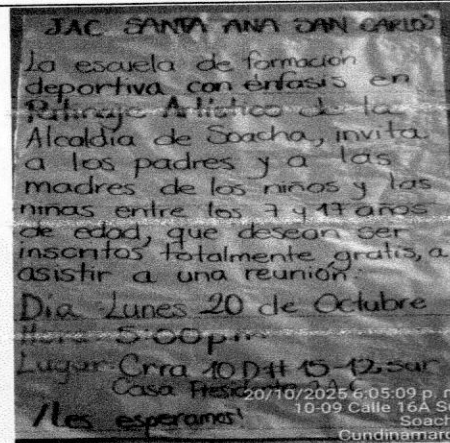 JAC SANTA ANA SAN CARLOS
La escuela de formación
deportiva con énfasis en
Patinaje Artístico de la
Alcaldia de Soacha, invita
a los padres y a las
madres de los niños y las
niñas entre los 7 y 17 años
de edad, que desean ser
inscritos totalmente gratis, a
asistir a una reunión:
Dia Lunes 20 de Octubre
5:00 p.m
Lugar: Crra 10 D# 15-12 sur
Casa Presidente
¡les esperamos!
20/10/2025 6:05:09 p. m
10-09 Calle 16A S
Soach
Cundinamarc